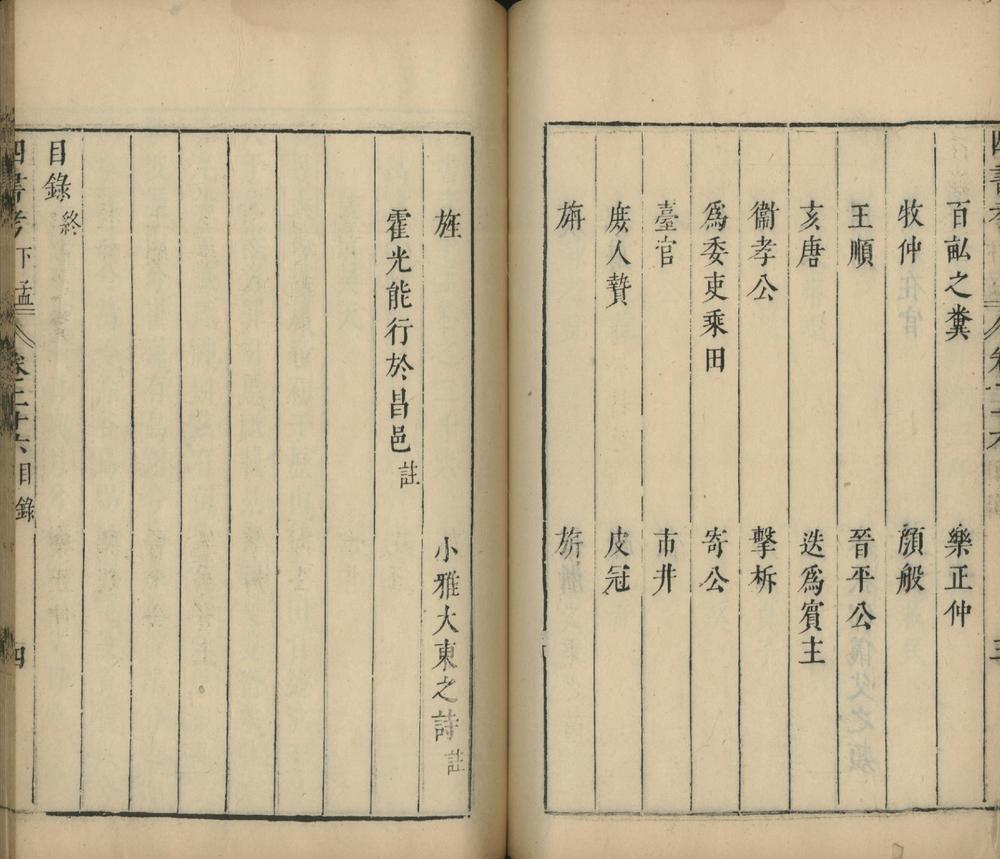 百畝之糞　樂正仲
牧仲　顔般
王順　晉平公
亥唐　迭爲賓主
衞孝公　擊柝
爲委吏乘田　寄公
臺官　市井
庶人贄　皮冠
旃　旂
旌　小雅大東之詩註
霍光能行於昌邑註
目錄終
四書考下孟　卷之二十六目錄　四